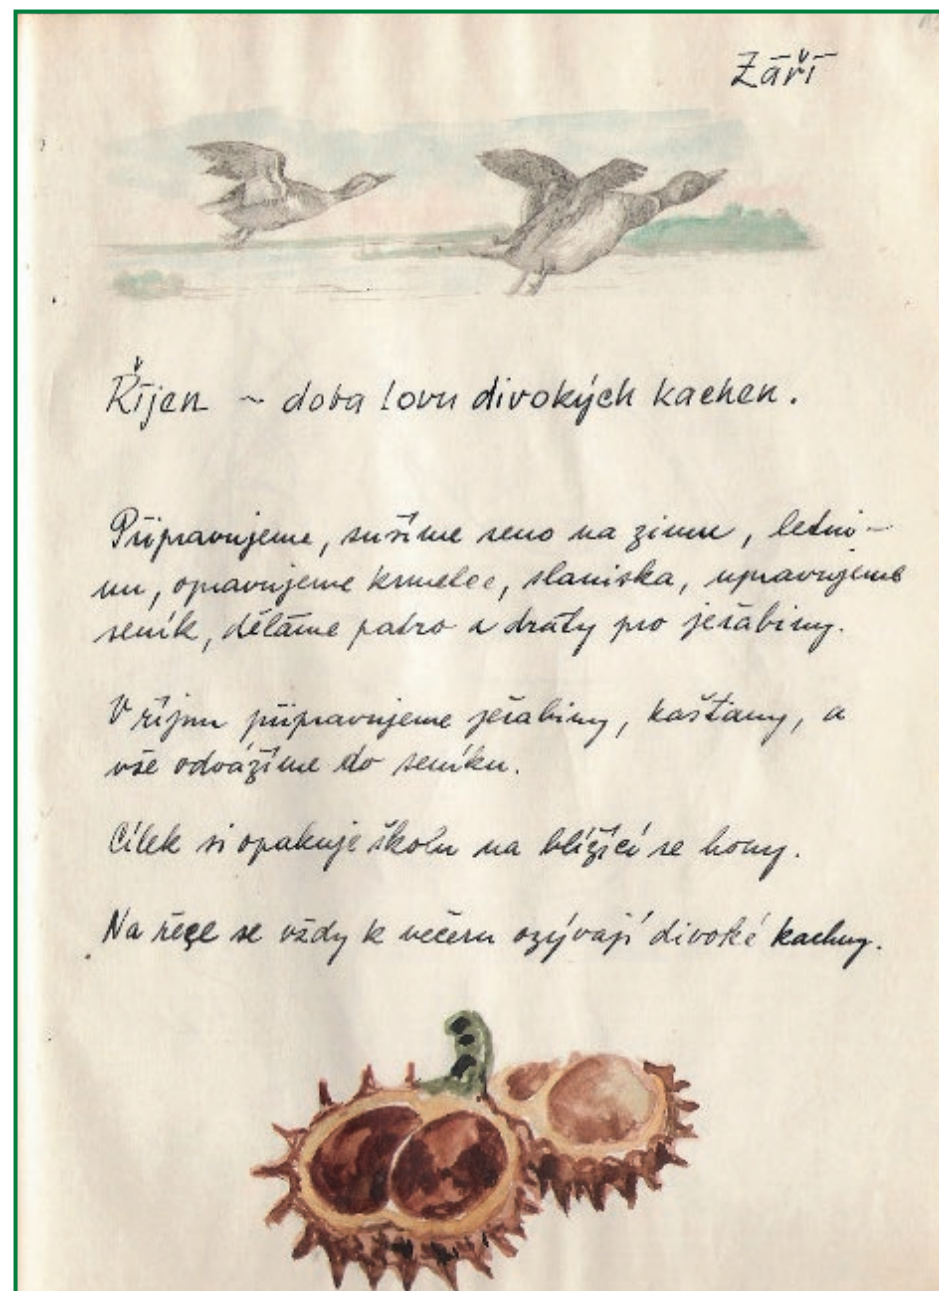 Září
Říjen ~ doba lovu divokých kachen.
Připravujeme, sušíme seno na zimu, letni-
nu, opravujeme krmelce, slaniska, upravujeme
seník, děláme patro a dráty pro jeřabiny.
V říjnu připravujeme jeřabiny, kaštany, a
vše odvážíme do seníku.
Cílek si opakuje školu na blížící se hony.
Na řece se vždy k večeru ozývají divoké kachny.